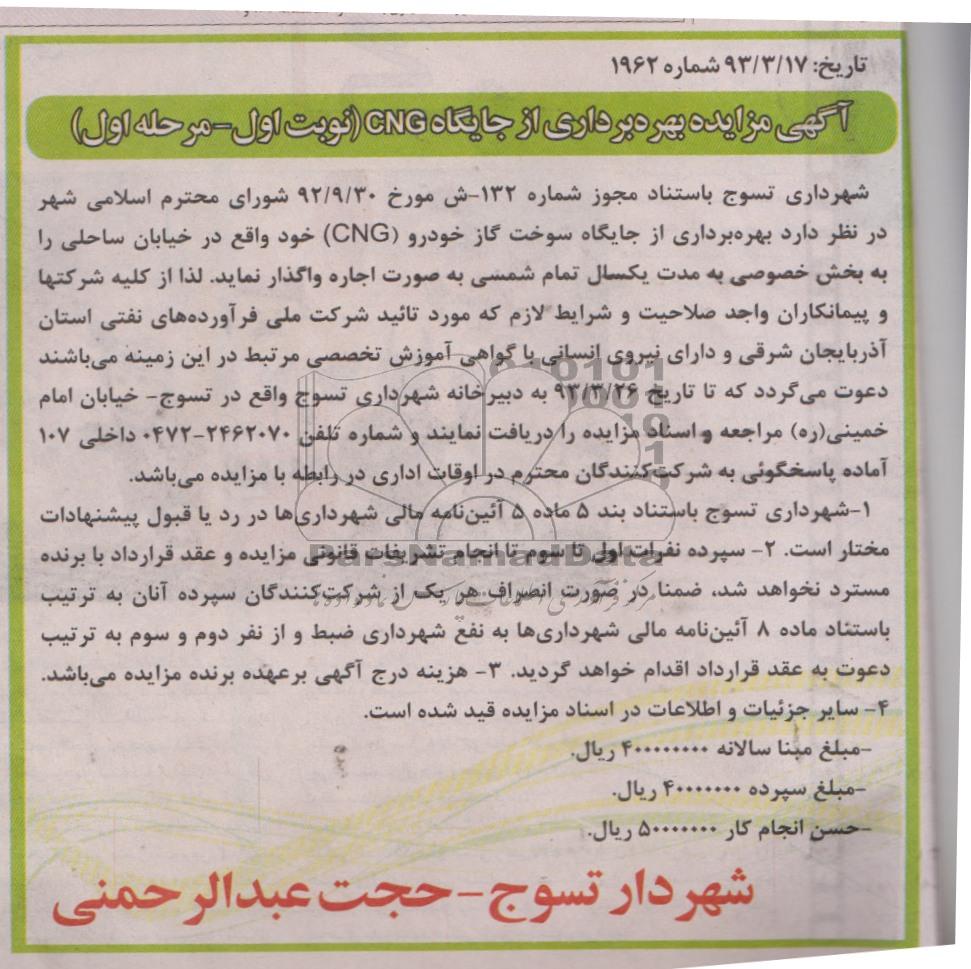 تاریخ: ۹۳/۳/۱۷ شماره ۱۹۶۲
آگهی مزایده بهره‌برداری از جایگاه CNG (نوبت اول-مرحله اول)
شهرداری تسوج باستناد مجوز شماره ۱۳۲-ش مورخ ۹۲/۹/۳۰ شورای محترم اسلامی شهر
در نظر دارد بهره‌برداری از جایگاه سوخت گاز خودرو (CNG) خود واقع در خیابان ساحلی را
به بخش خصوصی به مدت یکسال تمام شمسی به صورت اجاره واگذار نماید. لذا از کلیه شرکتها
و پیمانکاران واجد صلاحیت و شرایط لازم که مورد تائید شرکت ملی فرآورده‌های نفتی استان
آذربایجان شرقی و دارای نیروی انسانی با گواهی آموزش تخصصی مرتبط در این زمینه می‌باشند
دعوت می‌گردد که تا تاریخ ۹۳/۳/۲۶ به دبیرخانه شهرداری تسوج واقع در تسوج- خیابان امام
خمینی(ره) مراجعه و اسناد مزایده را دریافت نمایند و شماره تلفن ۲۴۶۲۰۷۰-۰۴۷۲ داخلی ۱۰۷
آماده پاسخگوئی به شرکت‌کنندگان محترم در اوقات اداری در رابطه با مزایده می‌باشد.
۱-شهرداری تسوج باستناد بند ۵ ماده ۵ آئین‌نامه مالی شهرداری‌ها در رد یا قبول پیشنهادات
مختار است. ۲- سپرده نفرات اول تا سوم تا انجام تشریفات قانونی مزایده و عقد قرارداد با برنده
مسترد نخواهد شد، ضمنا در صورت انصراف هر یک از شرکت‌کنندگان سپرده آنان به ترتیب
باستناد ماده ۸ آئین‌نامه مالی شهرداری‌ها به نفع شهرداری ضبط و از نفر دوم و سوم به ترتیب
دعوت به عقد قرارداد اقدام خواهد گردید. ۳- هزینه درج آگهی برعهده برنده مزایده می‌باشد.
۴- سایر جزئیات و اطلاعات در اسناد مزایده قید شده است.
-مبلغ مبنا سالانه ۴۰۰۰۰۰۰۰۰ ریال.
-مبلغ سپرده ۴۰۰۰۰۰۰۰ ریال.
-حسن انجام کار ۵۰۰۰۰۰۰۰ ریال.
شهردار تسوج-حجت عبدالرحمنی
ParsNamadData